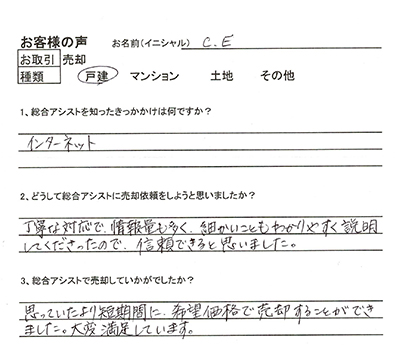 お客様の声 お名前(イニシャル) C.E
お取引 売却
種類 戸建 マンション 土地 その他
1、総合アシストを知ったきっかかけは何ですか?
インターネット
2、どうして総合アシストに売却依頼をしようと思いましたか?
丁寧な対応で、情報量も多く、細かいこともわかりやすく説明
してくださったので、信頼できると思いました。
3、総合アシストで売却していかがでしたか?
思っていたより短期間に、希望価格で売却することができ
ました。大変満足しています。